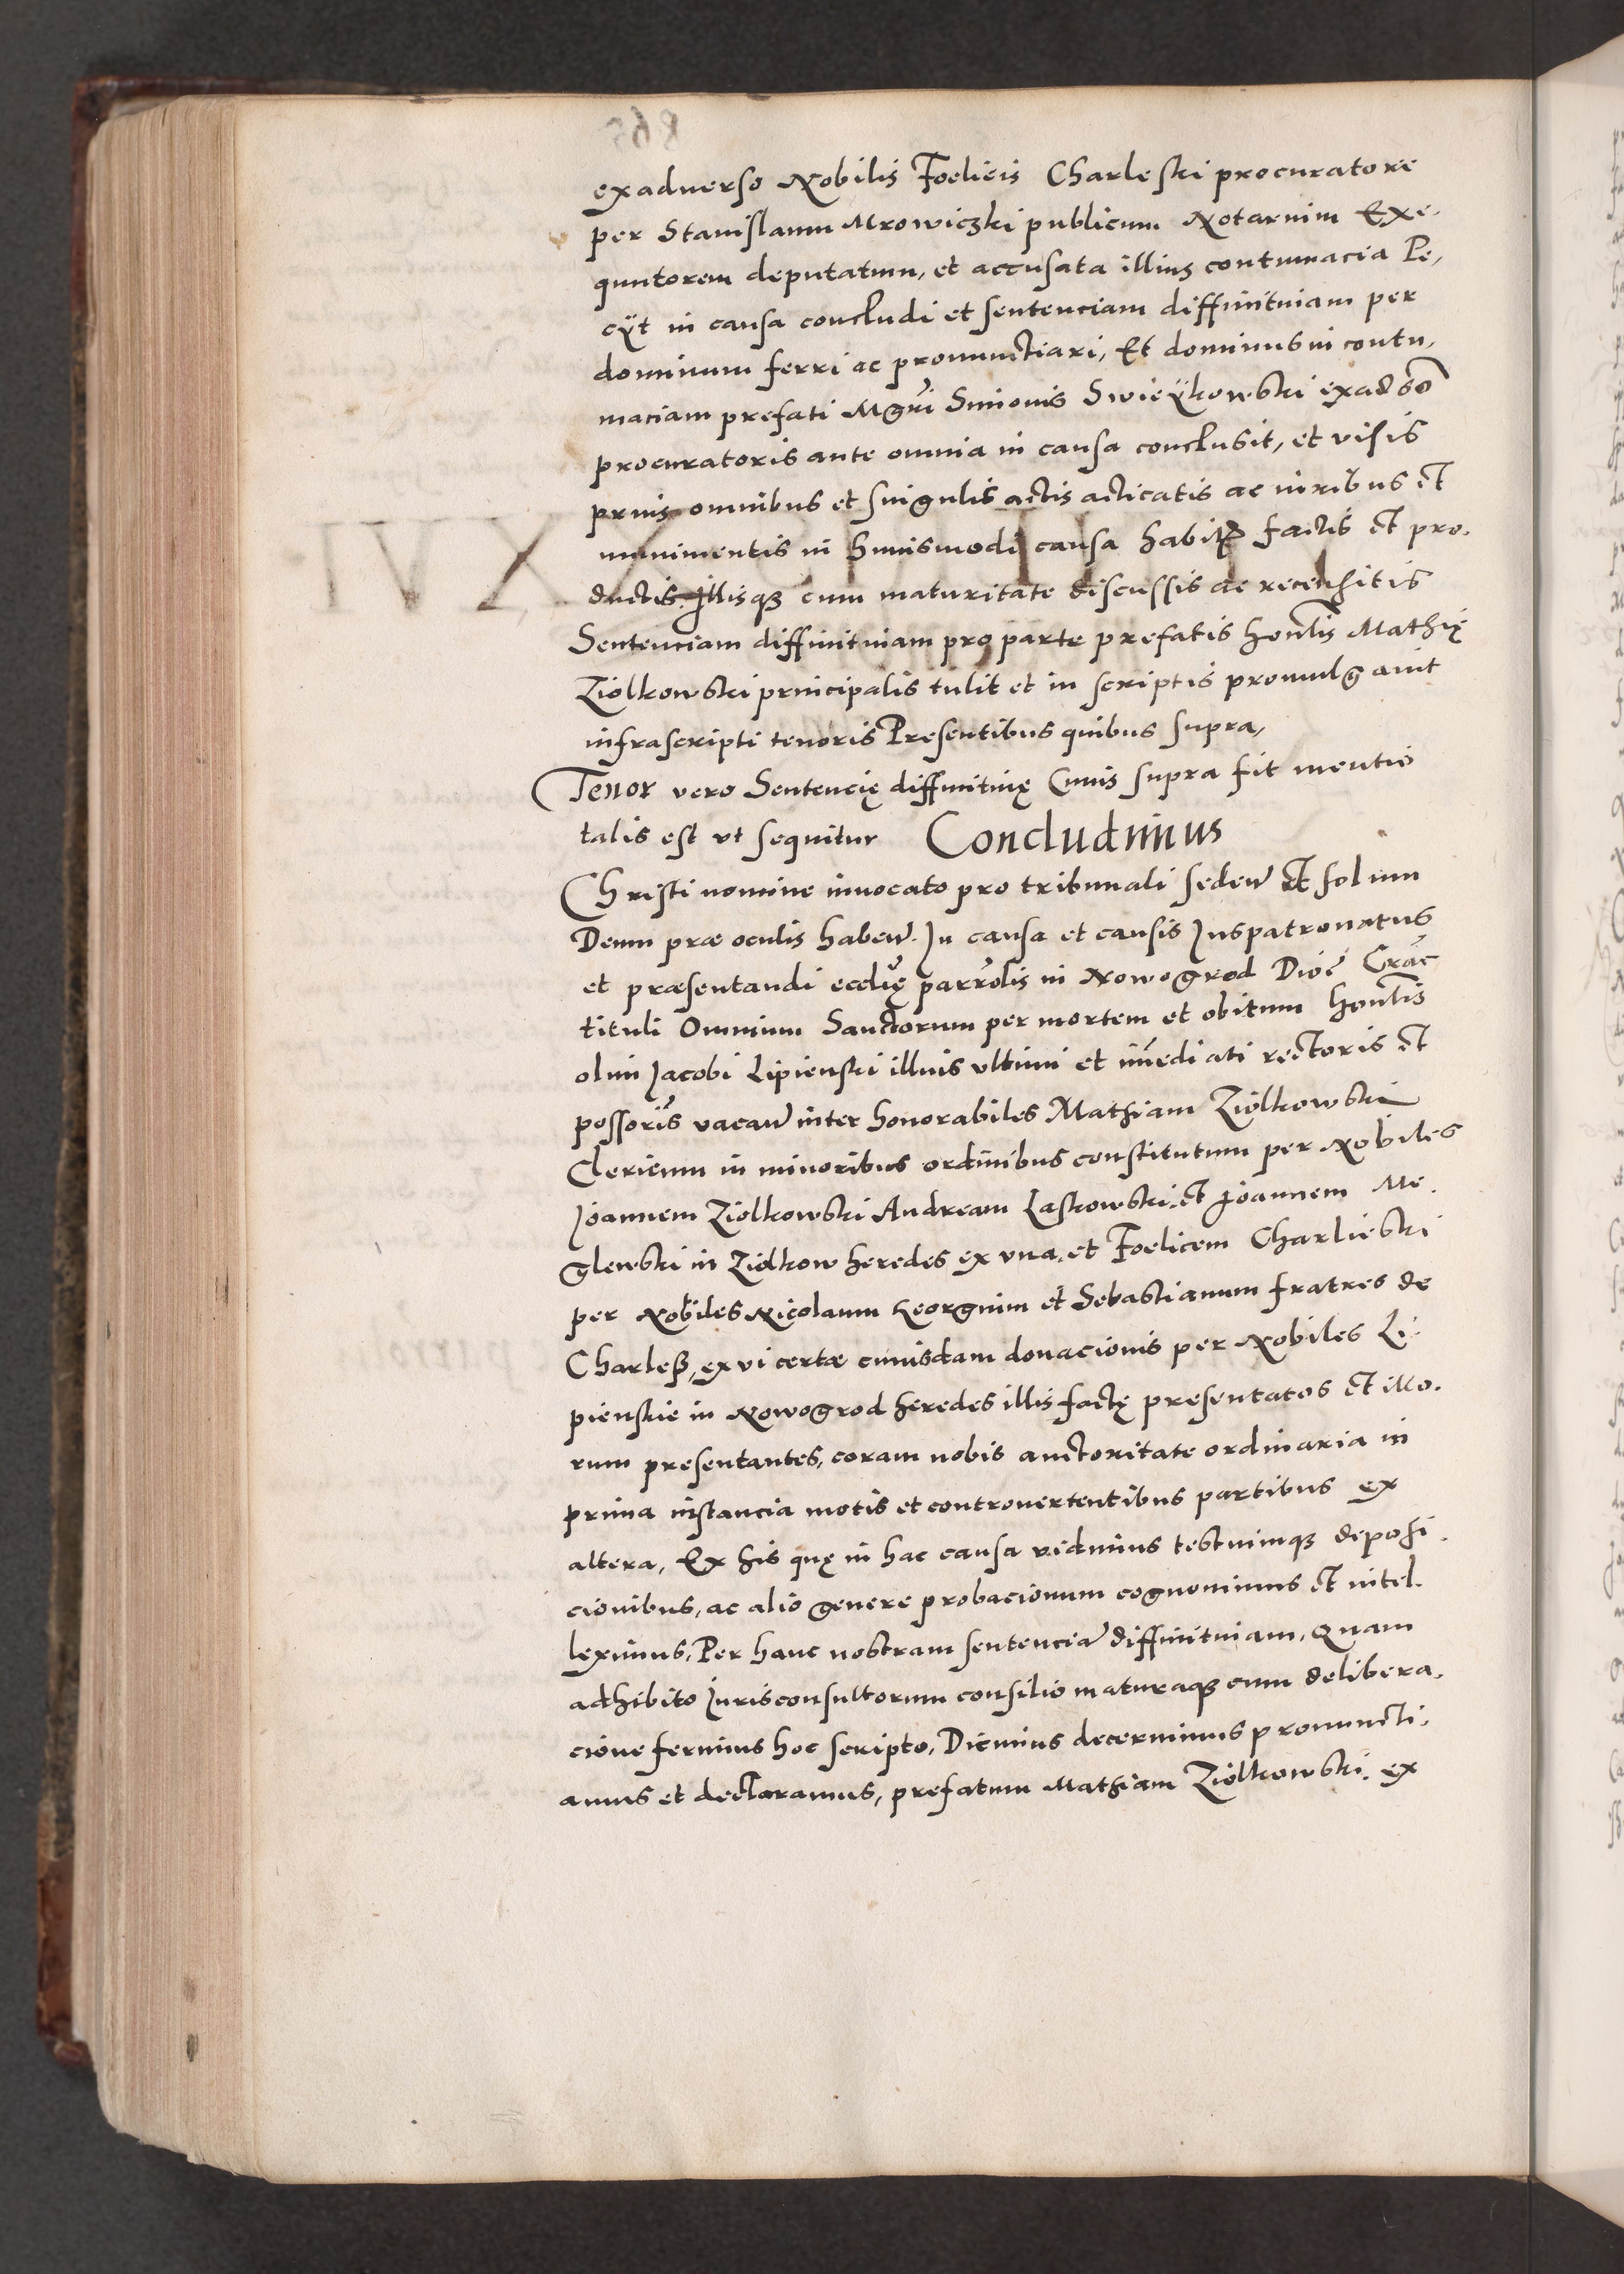 exaduerso Nobilis Foelicis Charleski procuratore
per Stanislaum Mrowiczki publicum Notarium Exe-
quutorem deputatum, et accusata illius contumacia Pe,
cÿt in causa concludi et sentenciam diffinitiuam per
dominum ferri ac pronunctiari, Et dominus in contu,
maciam prefati Mgri Simonis Swieÿkowski exadso
procuratoris ante omnia in causa conclusit, et visis
prius omnibus et singulis actis acticatis ac iuribus et
munimentis in huiusmodi causa habitis factis et pro-
ductis. Illisq3 cum maturitate discussis ac recensitis
Sentenciam diffinitiuam pro parte prefatis honlis Mathię
Ziolkowski principalis tulit et in scriptis promulgauit
infrascripti tenoris Presentibus quibus supra,
Tenor vero Sentencię diffinitiuę Cuius supra fit mentio
talis est vt sequitur Concludimus
Christi nomine inuocato pro tribunali seden et solum
Deum præ oculis haben. In causa et causis Iuspatronatus
et præsentandi ecclię parrolis in Nowogrod Dioc Crac
tituli Omnium Sanctorum per mortem et obitum honlis
olim Jacobi Lipienski illius vltimi et imediati rectoris et
possoris vacan inter honorabiles Mathiam Ziolkowski
Clericum in minoribus ordinibus constitutum per Nobiles
Joannem Ziolkowski Andream Laskowski et Joannem Me.
glewski in Ziolkow heredes ex vna, et Foelicem Charlieski
per Nobiles Nicolaum Georgium et Sebastianum fratres de
Charleß, ex vi certæ cuiusdam donacionis per Nobiles Li-
pienskie in Nowogrod heredes illis factę presentatos et illo-
rum presentantes, coram nobis auctoritate ordinaria in
prima instancia motis et controuertentibus partibus ex
altera, Ex his quę in hac causa vidimus testiumq3 deposi-
cionibus, ac alio genere probacionum cognouimus et intel-
leximus, Per hanc nostram sentencia diffinitiuam, Quam
adhibito Iurisconsultorum consilio maturaq3 cum delibera-
cione ferimus hoc scripto, Dicimus decernimus pronuncti-
amus et declaramus, prefatum Mathiam Ziolkowski ex